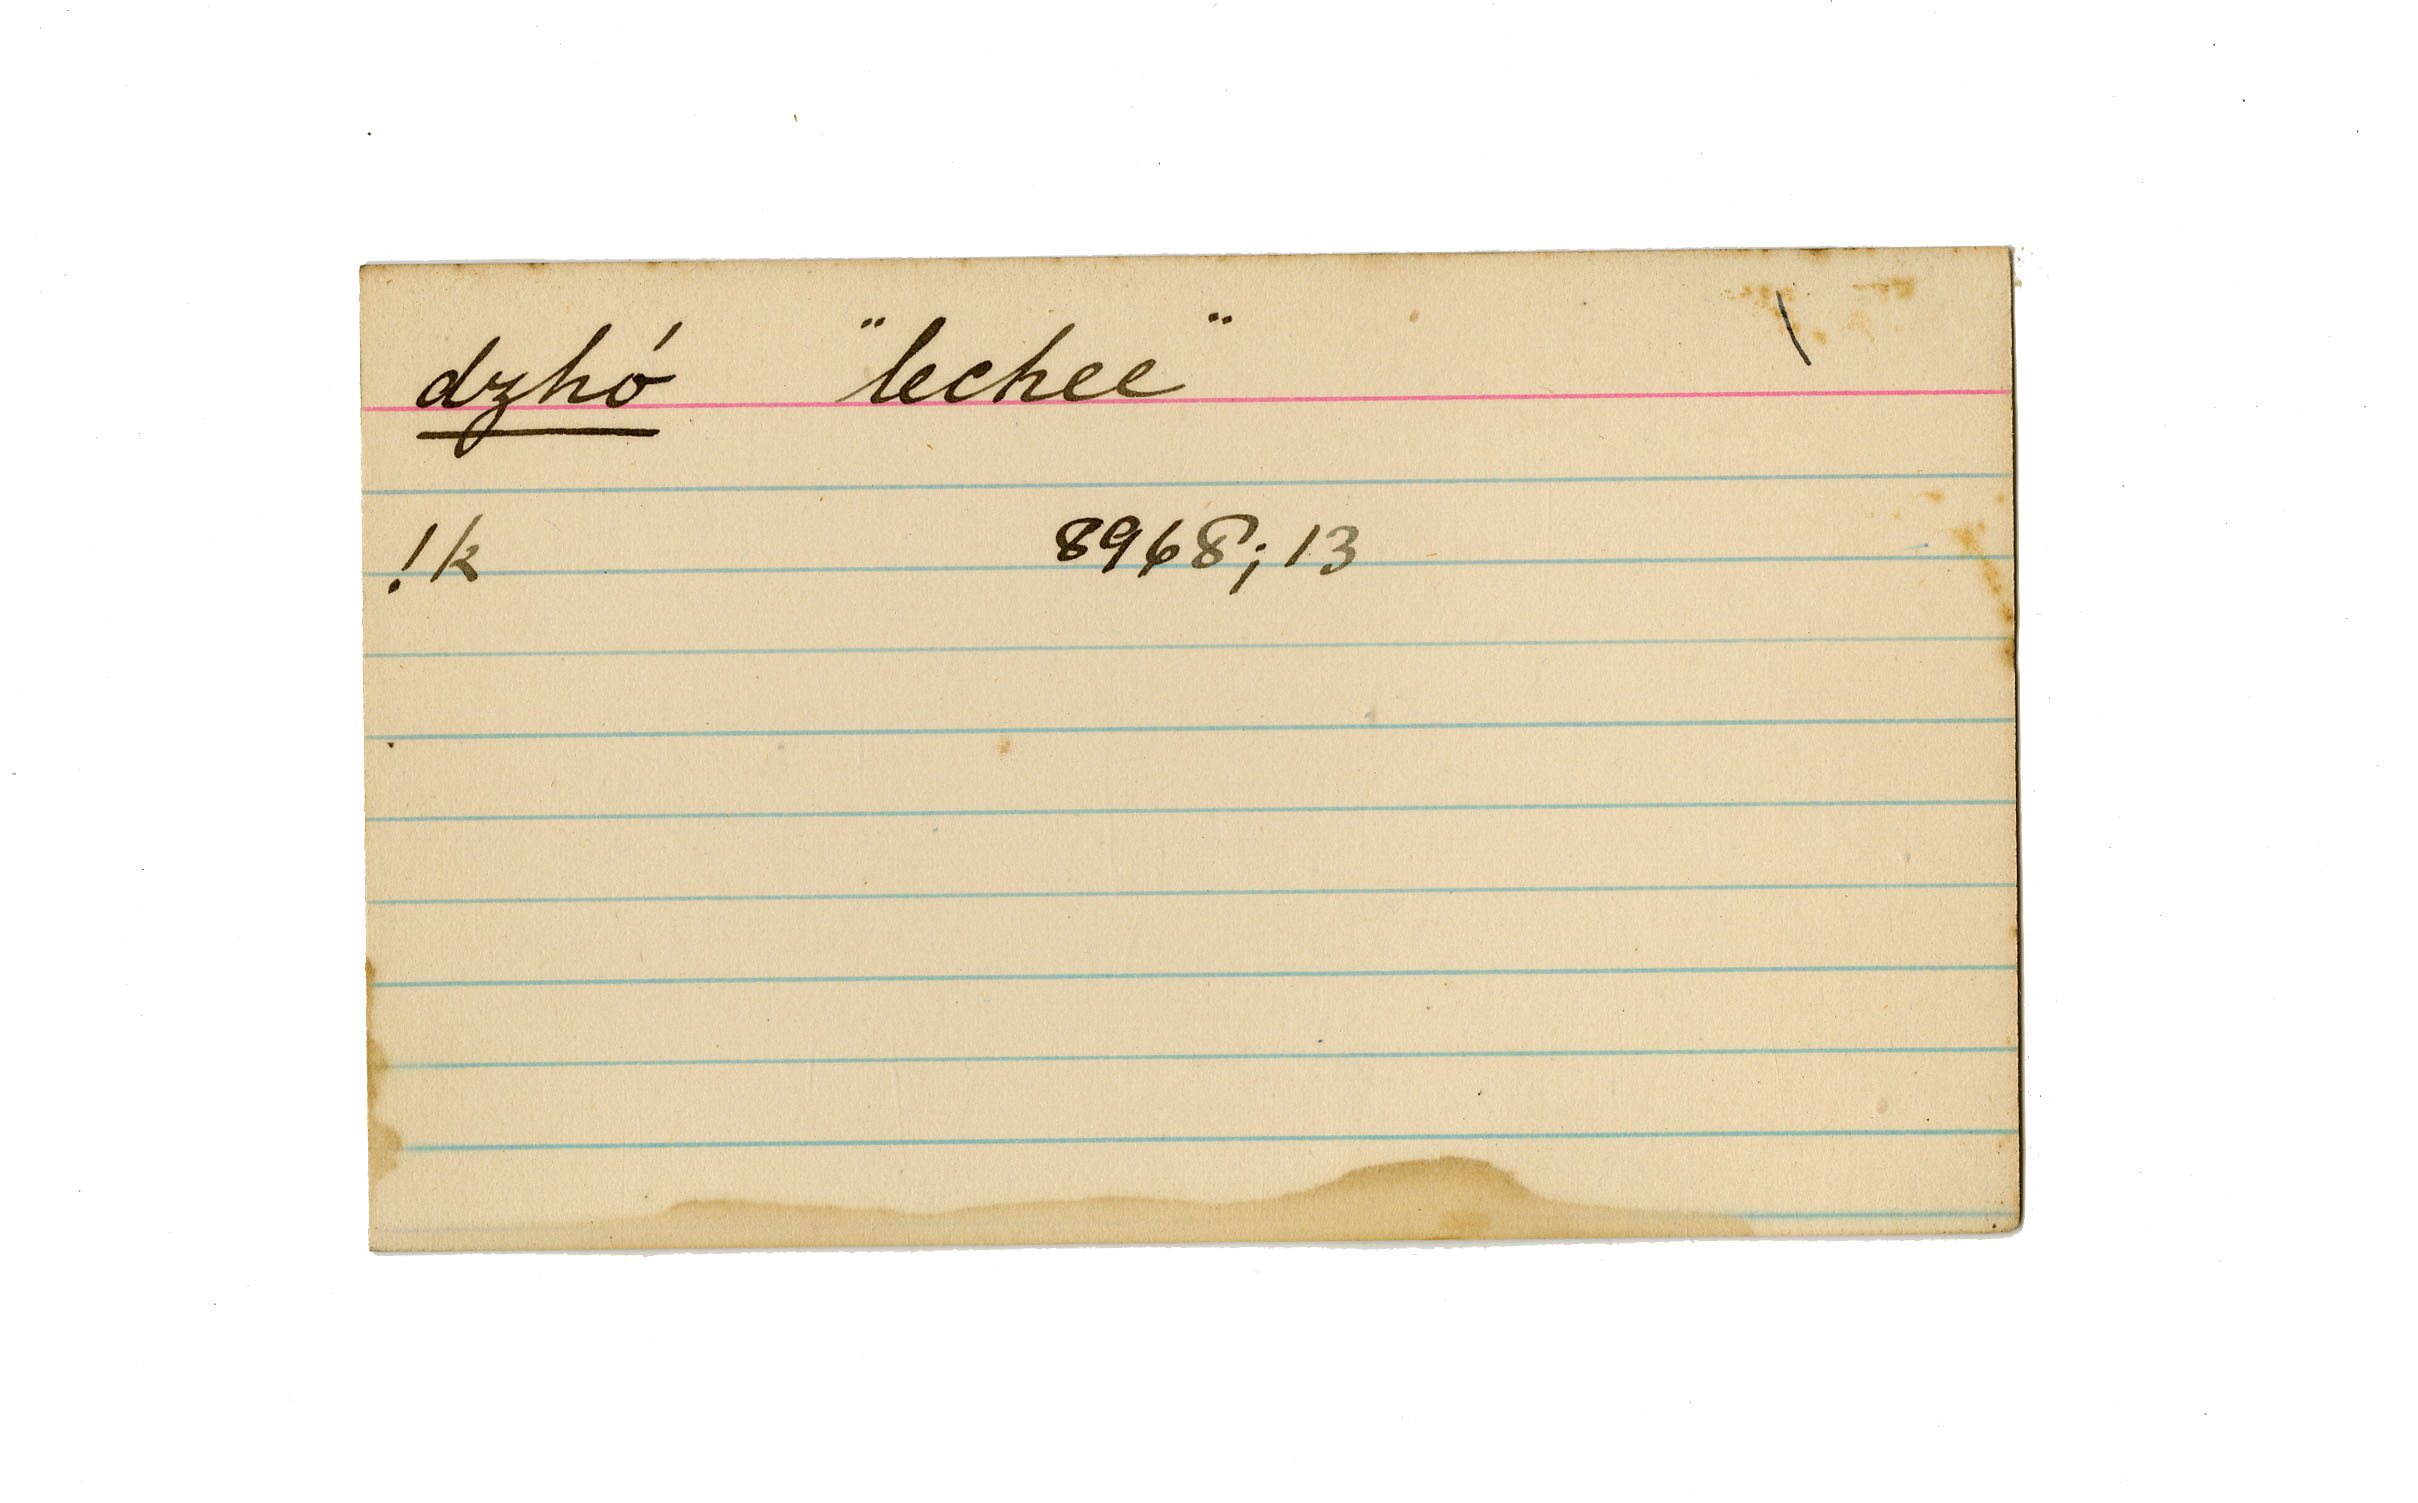 dzhó "lechee" \
!k 8968; 13